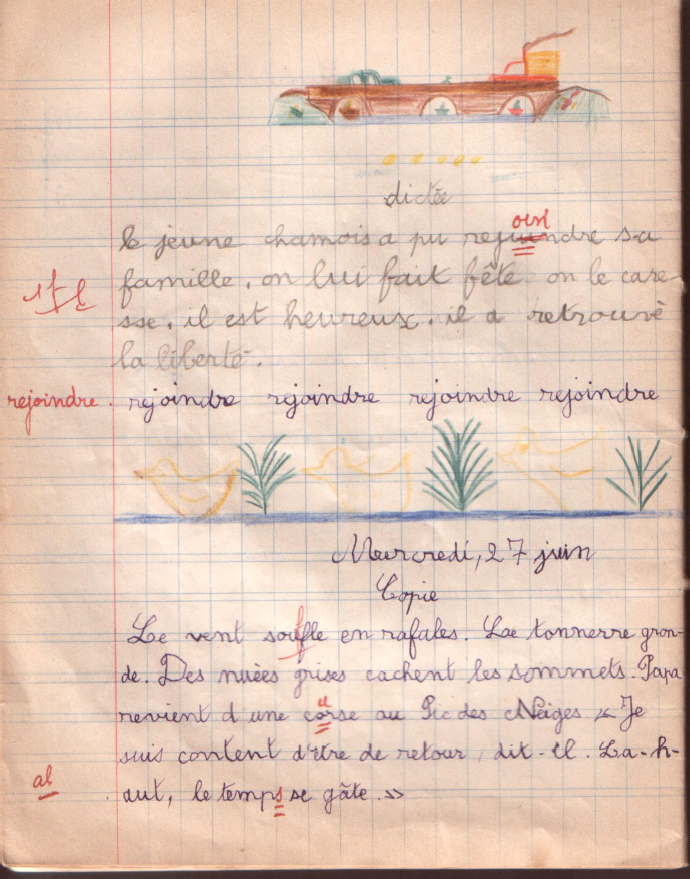 dictée
oin
le jeune chamois a pu rejuindre sa
famille. on lui fait fête on le care-
sse. il est heureux. il a retrouvé
la liberté.
rejoindre. rejoindre rejoindre rejoindre rejoindre
Mercredi, 27 juin
Copie
Le vent soufle en rafales. Le tonnerre gron-
de. Des nuées grises cachent les sommets. Papa
revient d'une corse au Pic des Neiges « Je
suis content d'être de retour, dit-il. La-h-
aut, le temps se gâte. »